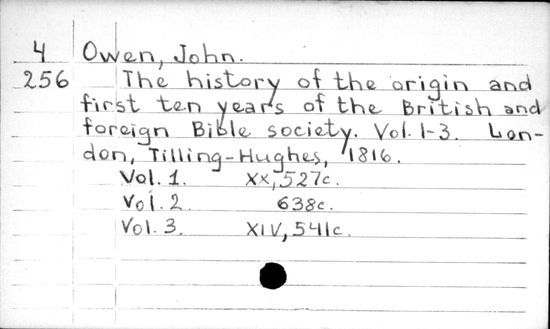 4 Owen, John.
256 The history of the origin and
first ten years of the British and
foreign Bible society. Vol. 1-3. Lon-
don, Tilling-Hughes, 1816.
Vol. 1. XX, 527c.
Vol. 2 638c.
Vol. 3. XIV, 541c.